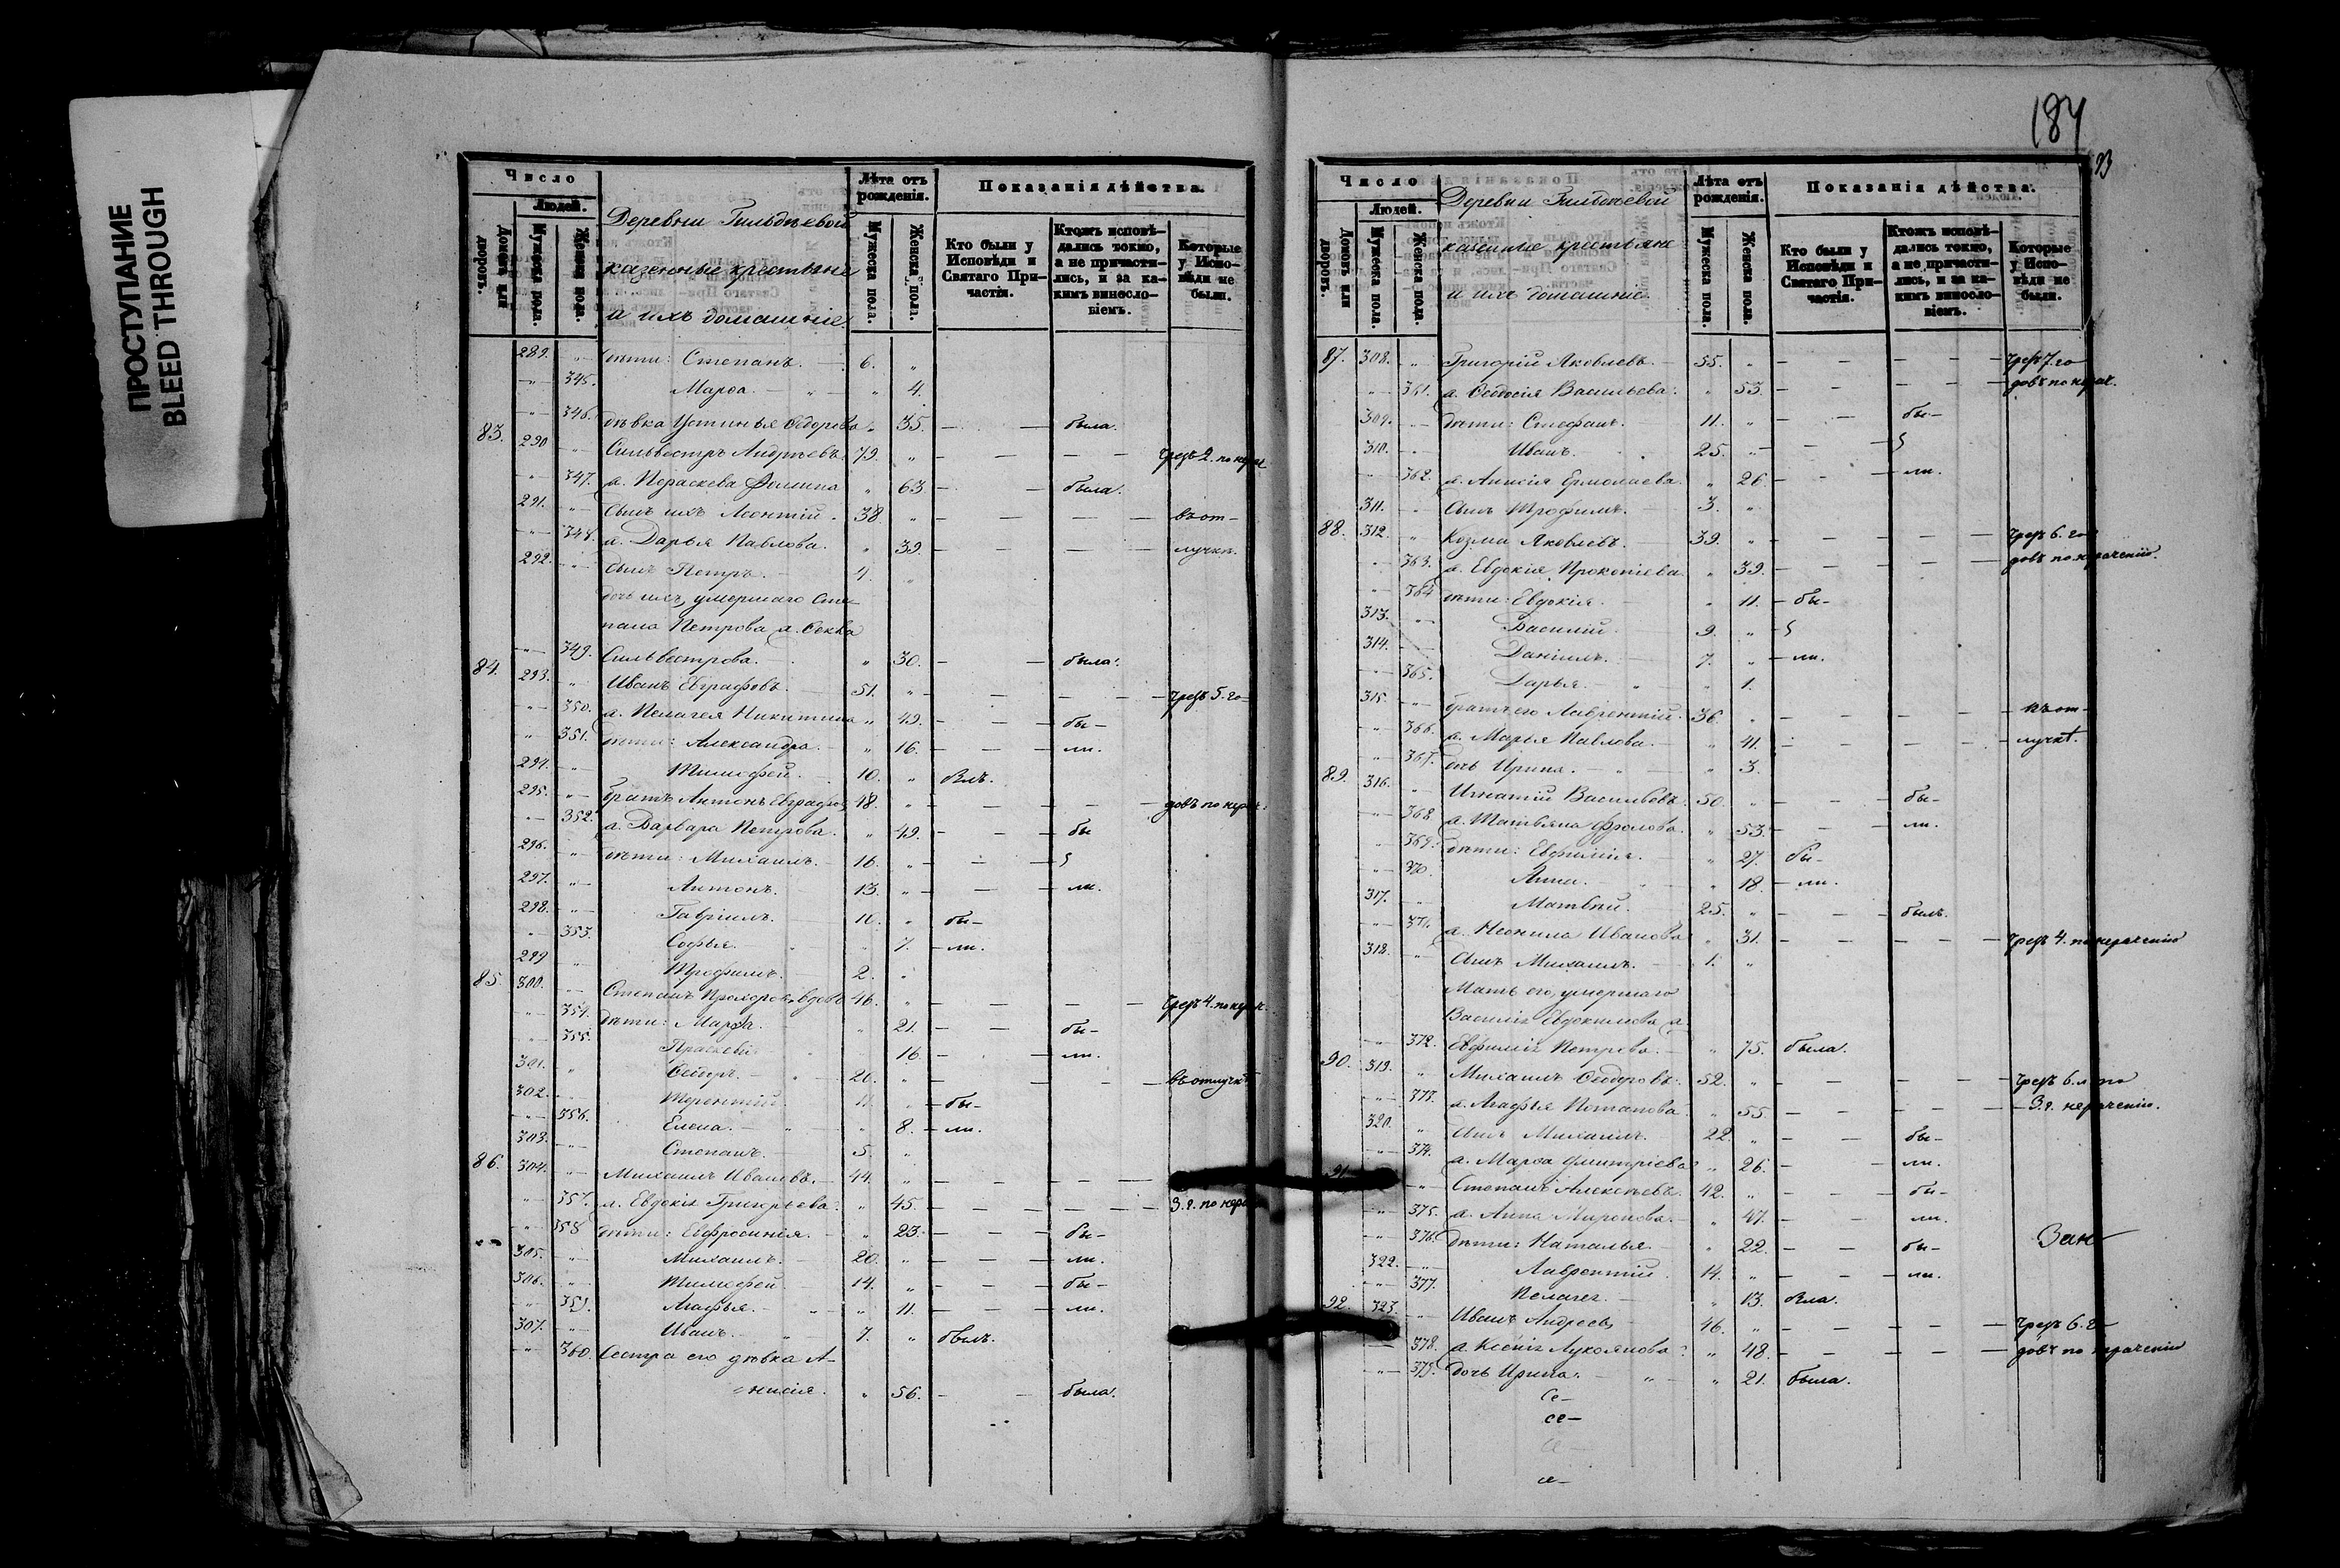 ПРОСТУПАНИЕ
BLEED THROUGH
Число
Людей.
Домовъ или дворовъ.
Мужеска пола.
Женска пола.
Деревни Гильдѣевой
казенные крестьяне
и ихъ домашніе.
Лѣта отъ рожденія.
Мужеска пола.
Женска пола.
Показанія дѣйства.
Кто были у Исповѣди и Святаго Причастія.
Ктожъ исповѣдались токмо, а не причастились, и за какимъ винословіемъ.
Которые у Исповѣди не были.
289. „ дѣти: Степанъ. 6. „
„ 345. Марѳа. „ 4.
„ 346. дѣвка Устинья Ѳедорова „ 35. — — была.
83. 290 „ Сильвестръ Андреевъ. 79. „ — — — — чрезъ 2. по нерач
„ 347. ж. Параскева Фомина „ 63. — была.
291. „ Сынъ ихъ Леонтій. 38. „ — — — — въ от-
„ 348. ж. Дарья Павлова. „ 39. — — — — лучкѣ.
292. „ сынъ Петръ. 4. „
дочь ихъ, умершаго Сте-
пана Петрова ж. Ѳекла
„ 349. Сильвестрова. „ 30. — — была.
84. 293. „ Иванъ Евграфовъ. 51. „ — — — — чрезъ 5. го-
„ 350. ж. Пелагея Никитина „ 49. — — бы-
„ 351. дѣти: Александра. „ 16. — — ли.
294. „ Тимофей. 10. „ былъ.
295. „ братъ Антонъ Евграфовъ 48. „ — — — — довъ по нерач.
„ 352. ж. Варвара Петрова. „ 49. — — бы
296. „ дѣти: Михаилъ. 16. „ — —
297. „ Антонъ. 13. „ — — ли.
298. „ Гавріилъ. 10. „ бы-
„ 353. Софья. „ 7. — ли.
299 „ Трофимъ. 2. „
85. 300. „ Степанъ Прохоровъ вдовъ 46. „ — — — — чрезъ 4. по нерач.
„ 354. дѣти: Марѳа. „ 21. — — бы-
„ 355. Праскевія „ 16. — — ли.
301. „ Ѳедоръ. 20. „ — — — въ отлучкѣ
302. „ Терентій. 11. „ — бы-
„ 356. Елена. „ 8. — ли.
303. „ Степанъ. 5. „
86. 304. „ Михаилъ Ивановъ. 44. „ — — — —
„ 357. ж. Евдокія Григорьева. „ 45. — — — — 3. г. по нерач
„ 358 дѣти: Евфросинія. „ 23. — — бы-
305. „ Михаилъ. 20. „ — — ли.
306. „ Тимофей 14. „ — — бы-
„ 359. Агафья. „ 11. — — ли.
307. „ Иванъ. 7. „ былъ.
„ 360. Сестра его дѣвка А-
нисія. „ 56. — — была.
184
93
Число
Людей.
Домовъ или дворовъ.
Мужеска пола.
Женска пола.
Деревни Гильдѣевой
казенные крестьяне
и ихъ домашніе
Лѣта отъ рожденія.
Мужеска пола.
Женска пола.
Показанія дѣйства.
Кто были у Исповѣди и Святаго Причастія.
Ктожъ исповѣдались токмо, а не причастились, и за какимъ винословіемъ.
Которые у Исповѣди не были.
87. 308. „ Григорій Яковлевъ. 55. „ — — — — чрезъ 7. го
„ 361. ж. Ѳедосія Васильева. „ 53. — — — — довъ по нерач.
309. „ дѣти: Стефанъ. 11. „ — — бы-
310. „ Иванъ. 25. „ — —
„ 362. ж. Анисія Ермолаева. „ 26. — — ли.
311. „ Сынъ Трофимъ. 3. „
88. 312. „ Козма Яковлевъ. 39. „ — — — — чрезъ 6. го-
„ 363. ж. Евдокія Прокопіева. „ 39. — — — — довъ по нераченію.
„ 364 дѣти: Евдокія. „ 11. — бы-
313. „ Василій. 9. „
314. „ Даніилъ. 7. „ — ли.
„ 365. Дарья. „ 1.
315. „ братъ его Лаврентій. 36. „ — — — — въ от-
„ 366. ж. Марья Павлова. „ 41. — — — — лучкѣ.
„ 367. дочь Ирина. „ 3.
89. 316. „ Игнатій Васильевъ. 50. „ — — бы-
„ 368 ж. Татьяна Фролова. „ 53. — — ли.
„ 369. дѣти: Евфимія. „ 27. бы-
„ 370. Анна. „ 18. — ли.
317. „ Матвѣй. 25. „ — — былъ.
„ 371. ж. Неонила Иванова „ 31. — — — — чрезъ 4. по нераченію
318. „ Сынъ Михаилъ. 1. „
Мать его, умершаго
Василія Евдокимова ж.
„ 372. Евфимія Петрова. „ 75. была.
90. 319. „ Михаилъ Ѳедоровъ. 52. „ — — — — чрезъ 6. л. по
„ 373. ж. Агафья Потапова. „ 55. — — — — 3. г. нераченію.
320. „ Сынъ Михаилъ. 22. „ — — бы-
„ 374. ж. Марѳа Дмитріева „ 26. — — ли.
91. „ Степанъ Алексѣевъ. 42. „ — — бы-
„ 375. ж. Анна Миронова. „ 47. — — ли.
„ 376. дѣти: Наталья. „ 22. — — бы-
322. „ Лаврентій. 14. „ — — ли.
„ 377. Пелагея. „ 13. была.
92. 323. „ Иванъ Андреевъ 46. „ — — — — чрезъ 6. го-
„ 378. ж. Ксенія Лукоянова „ 48. — — — — довъ по нераченію
„ 379. дочь Ирина. „ 21. была.
Се-
се-
се-